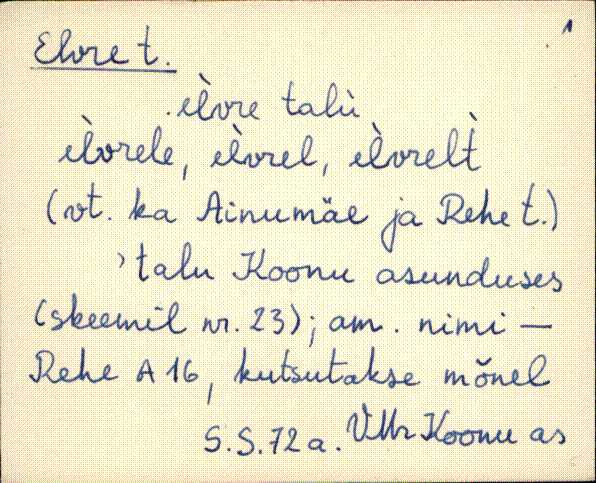 1
Elvre t.
èlvre talù
èlvrele, èlvrel, èlvrelt̀
(vt. ka Ainumäe ja Rehe t.)
talu Koonu asunduses
(skeemil nr. 23); am. nimi —
Rehe A 16, kutsutakse mõnel
S.S. 72 a. VMr Koonu as